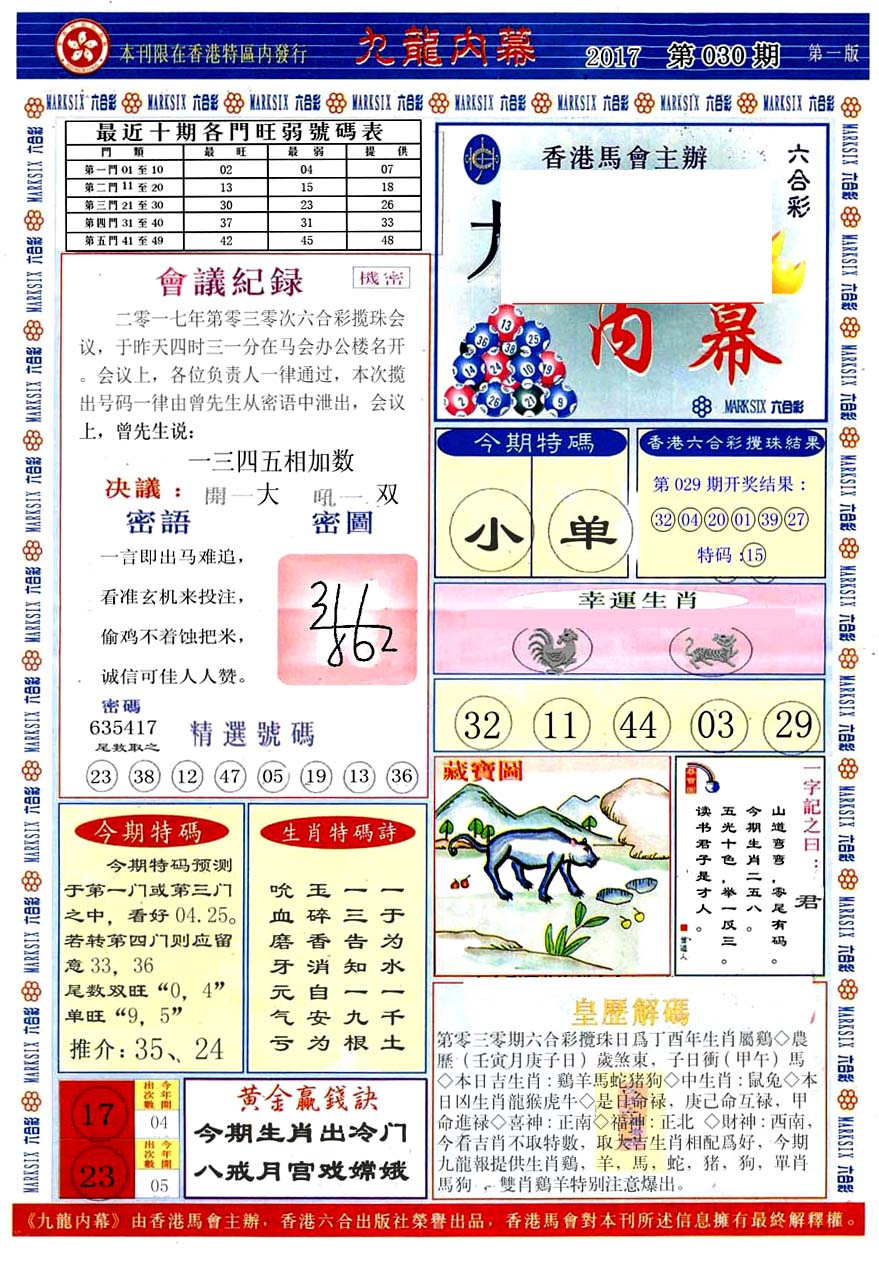 本刊限在香港特區内發行
九龍内幕
2017 第030期
第一版
MARKSIX 六合彩
最近十期各門旺弱號碼表
門類 最旺 最弱 提供
第一門 01 至 10 02 04 07
第二門 11 至 20 13 15 18
第三門 21 至 30 30 23 26
第四門 31 至 40 37 31 33
第五門 41 至 49 42 45 48
香港馬會主辦
六合彩
内幕
13
36 38 25
14 24 10 19
2 26 21 9
MARKSIX 六合彩
會議紀録
機密
二零一七年第零三零次六合彩攬珠会
议，于昨天四时三一分在马会办公楼名开
。会议上，各位负责人一律通过，本次揽
出号码一律由曾先生从密语中泄出，会议
上，曾先生说：
一三四五相加数
决議：開一大 吼一双
密語
密圖
一言即出马难追，
看准玄机来投注，
偷鸡不着蚀把米，
诚信可佳人人赞。
31
862
密碼
635417
尾数取之
精選號碼
23 38 12 47 05 19 13 36
今期特碼
小 单
香港六合彩攪珠結果
第 029 期开奖结果：
32 04 20 01 39 27
特码：15
幸運生肖
32 11 44 03 29
藏寶圖
一字記之曰：君
山道弯弯，零尾有码。
今期生肖二五八。
五光十色，举一反三。
读书君子是才人。
今期特碼
今期特码预测
于第一门或第三门
之中，看好 04.25。
若转第四门则应留
意 33，36
尾数双旺“0，4”
单旺“9，5”
推介：35、24
生肖特碼詩
一于为水一千土
一三告知一九根
玉碎香消自安为
吮血磨牙元气亏
17
今年開出次數
04
23
今年開出次數
05
黄金贏錢訣
今期生肖出冷门
八戒月宫戏嫦娥
皇歷解碼
第零三零期六合彩攪珠日爲丁酉年生肖屬鷄◇農
歷（壬寅月庚子日）歲煞東，子日衝（甲午）馬
◇本日吉生肖：鷄羊馬蛇猪狗◇中生肖：鼠兔◇本
日凶生肖龍猴虎牛◇是日命禄，庚己命互禄，甲
命進禄◇喜神：正南◇福神：正北 ◇財神：西南，
今看吉肖不取特數，取大吉生肖相配爲好，今期
九龍報提供生肖鷄，羊，馬，蛇，猪，狗，單肖
馬狗，雙肖鷄羊特别注意爆出。
《九龍内幕》由香港馬會主辦，香港六合出版社榮譽出品，香港馬會對本刊所述信息擁有最終解釋權。